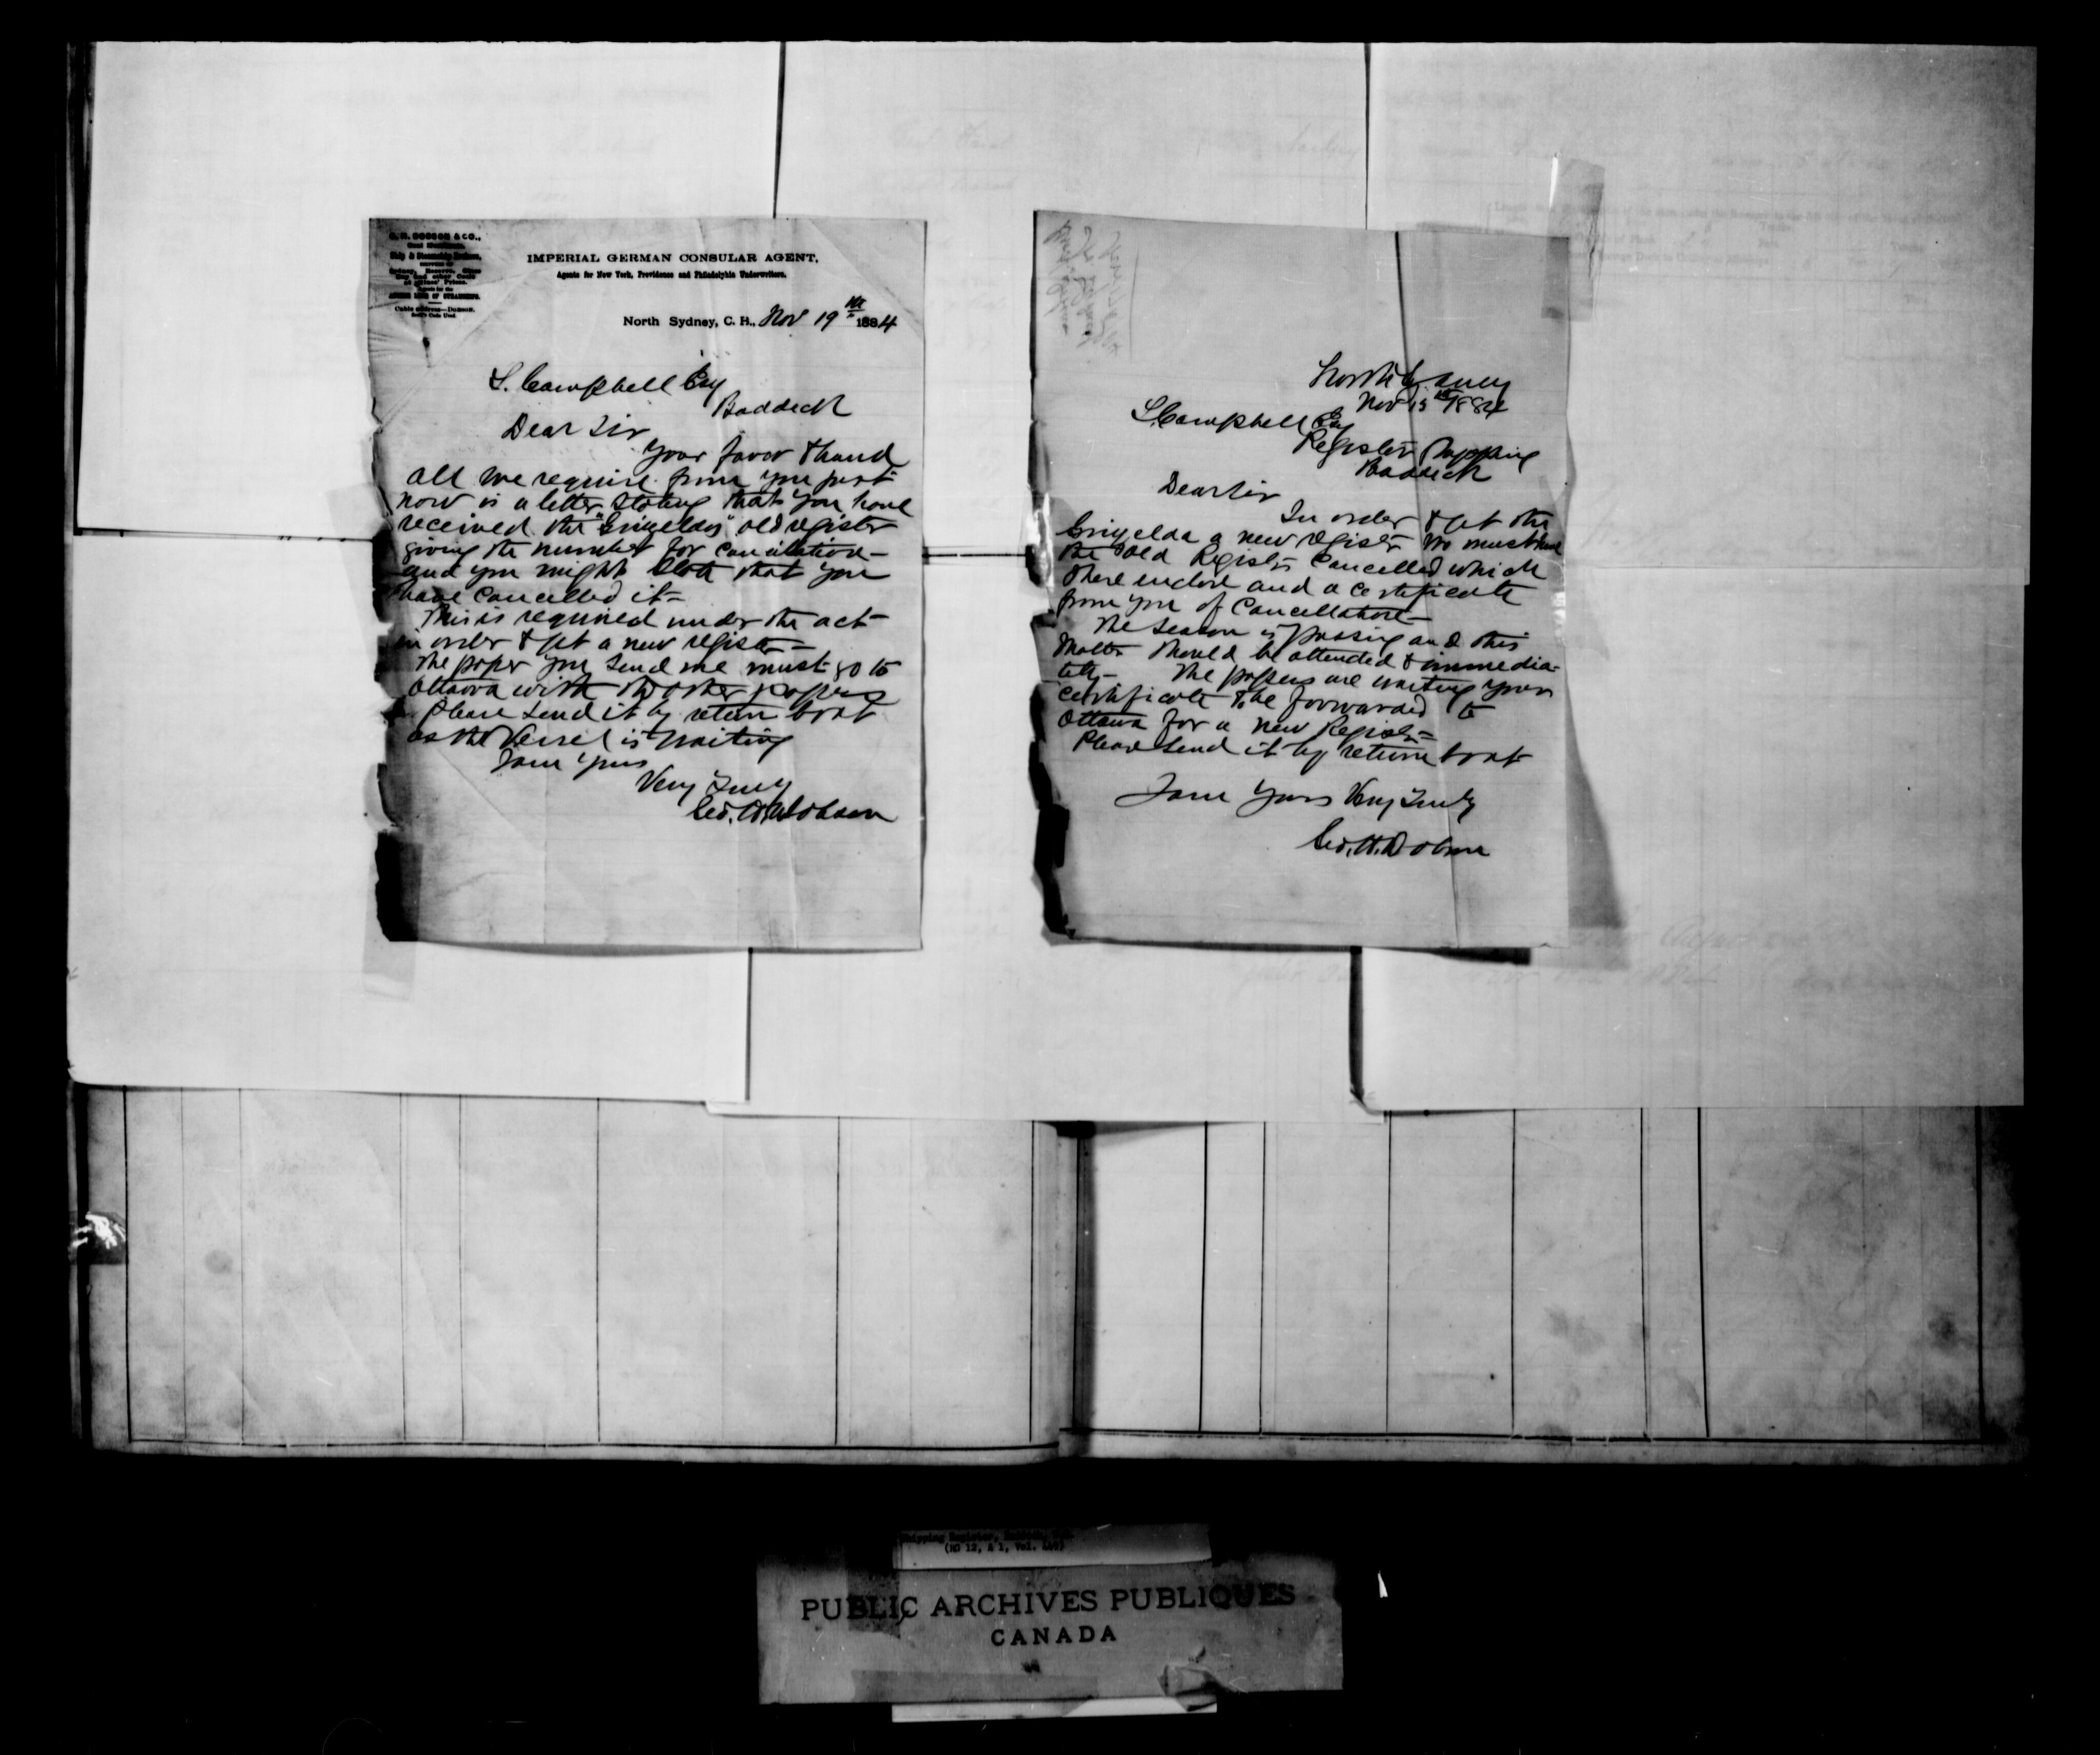 G. H. DOBSON & CO.,
Ship & Steamship Brokers,
Sydney, Reserve,
Mines' Prices.
Agents for the
LINE OF STEAMSHIPS.
Cable address—DOBSON.
Code Used
IMPERIAL GERMAN CONSULAR AGENT,
Agents for New York, Providence and Philadelphia Underwriters.
North Sydney, C. B., Nov 19th 1884
L. Campbell Esq
Baddeck
Dear Sir
Your favor to hand
All we require from you just
now is a letter stating that you have
received the "Grizeldas" old register
giving the number for cancilation -
and you might state that you
have cancelled it -
This is required under the act
in order to get a new register -
The paper you send me must go to
Ottawa with the other papers
Please send it by return boat
as the Vessel is waiting
I am Yours
Very Truly
Geo. H. Dobson
North Sydney
Nov 15th 1884
L. Campbell Esq
Register Shipping
Baddeck
Dear Sir
In order to get the
Grizelda a new register we must have
the old Register Cancelled which
I here enclose and a certificate
from you of Cancellation -
The season is passing and this
matter should be attended to immedia-
tely - The papers are waiting your
certificate to be forwarded to
Ottawa for a new Register -
Please send it by return boat
I am Yours Very Truly
Geo. H. Dobson
Shipping Register,
PUBLIC ARCHIVES PUBLIQUES
CANADA